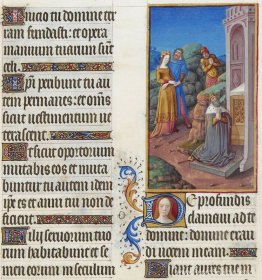 Inicio tu domine ter
ram fundasti: et opera
manuum tuarum sunt
celi.
Ipsi peribunt tu au
tem permanes: et omēs
sicut uestimentum ue
terascent.
Et sicut opertorium
mutabis eos et muta
buntur tu autem idem
ipse es et anni tui non de
ficient.
Filii seruorum tuo
rum habitabunt et se
men eorum in seculum
De profundis
clamaui ad te
domine: domine exau
di uocem meam.
Fiant aures tue in